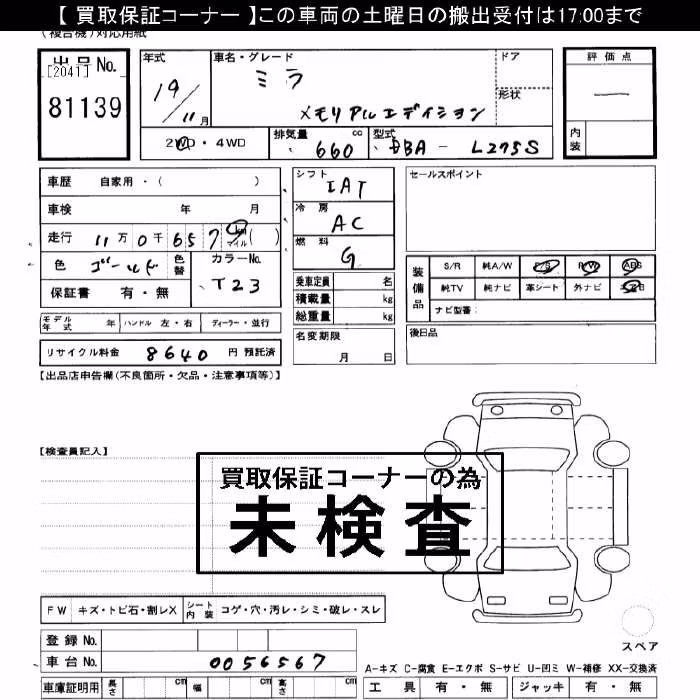 【 買取保証コーナー 】この車両の土曜日の搬出受付は17:00まで
(複合機)対応用紙
出品No.
[2041]
81139
年式
19/11月
車名・グレード
ミラ
メモリアルエディション
ドア
形状
評価点
—
内装
2WD・4WD
排気量 660 cc
型式 DBA - L275S
車歴 自家用・( )
車検 年 月
走行 11万0千657 km マイル ( )
色 ゴールド 色替 カラーNo. T23
保証書 有・無
シフト IAT
冷房 AC
燃料 G
乗車定員 名
積載量 kg
総重量 kg
名変期限
月 日
セールスポイント
装備品
S/R 純A/W P/S P/W ABS
純TV 純ナビ 革シート 外ナビ
ナビ型番:
後日品
モデル年式 年 ハンドル 左・右 ディーラー・並行
リサイクル料金 8640 円 預託済
【出品店申告欄(不良箇所・欠品・注意事項等)】
【検査員記入】
買取保証コーナーの為
未検査
FW キズ・トビ石・割レX シート内装 コゲ・穴・汚レ・シミ・破レ・スレ
登録No.
車台No. 0056567
車庫証明用 長さ cm 幅 cm 高さ cm
スペア
A-キズ C-腐食 E-エクボ S-サビ U-凹ミ W-補修 XX-交換済
工具 有・無 ジャッキ 有・無